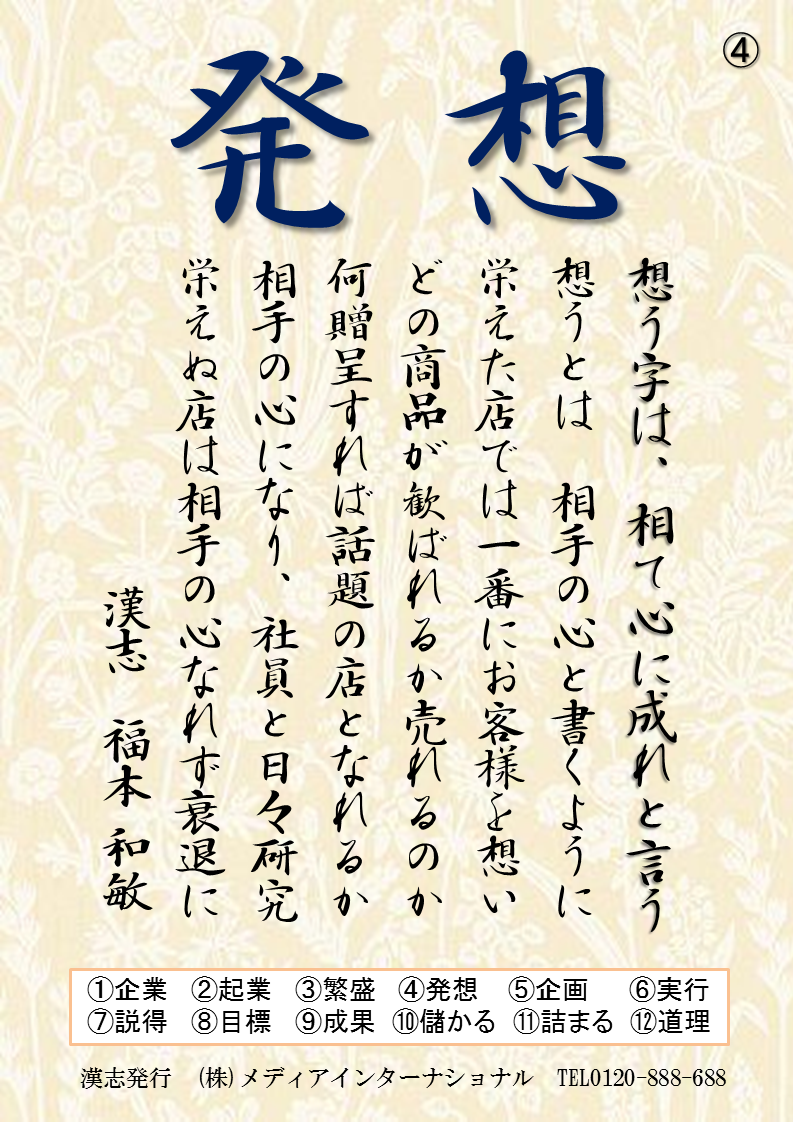 ④
発想
想う字は、相て心に成れと言う
想うとは 相手の心と書くように
栄えた店では一番にお客様を想い
どの商品が歓ばれるか売れるのか
何贈呈すれば話題の店となれるか
相手の心になり、社員と日々研究
栄えぬ店は相手の心なれず衰退に
漢志 福本 和敏
①企業 ②起業 ③繁盛 ④発想 ⑤企画 ⑥実行
⑦説得 ⑧目標 ⑨成果 ⑩儲かる ⑪詰まる ⑫道理
漢志発行 (株)メディアインターナショナル TEL0120-888-688